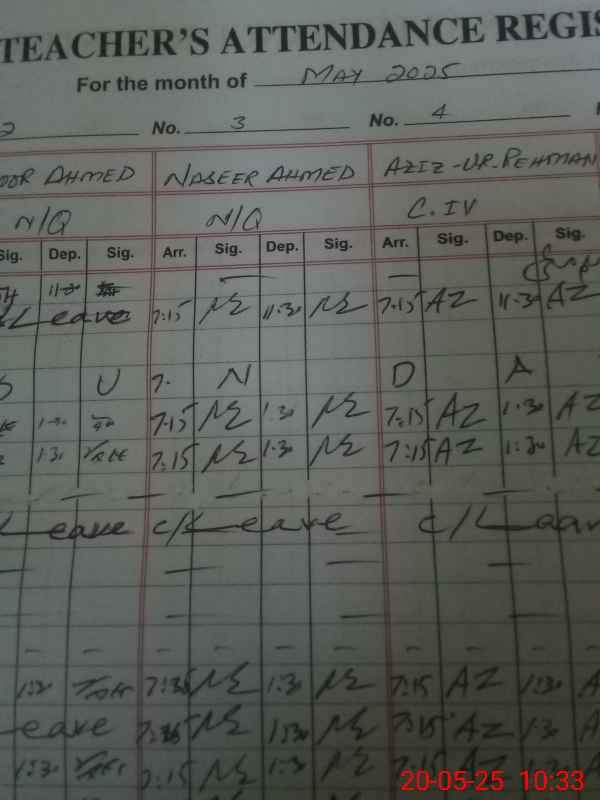 TEACHER'S ATTENDANCE REGIS
For the month of MAY 2025
2 No. 3 No. 4
OOR AHMED NASEER AHMED AZIZ-UR-REHMAN
N/Q N/Q C.IV
Sig. Dep. Sig. Arr. Sig. Dep. Sig. Arr. Sig. Dep. Sig.
— —
Leave 7:15 NS 11:30 NS 7:15 AZ 11:30 AZ
S U N D A
7:15 NS 1:30 NS 7:15 AZ 1:30 AZ
1:30 7:15 NS 1:30 NS 7:15 AZ 1:30 AZ
— — — — — —
Leave C/Leave C/Leav
— — — —
— —
— — — — — — — — —
7:35 NS 1:30 NS 7:15 AZ 1:30 A
eave NS 1:30 NS 7:15 AZ 1:30 A
1:30 7:15 NS 1:30 NS 7:15 AZ
20-05-25 10:33